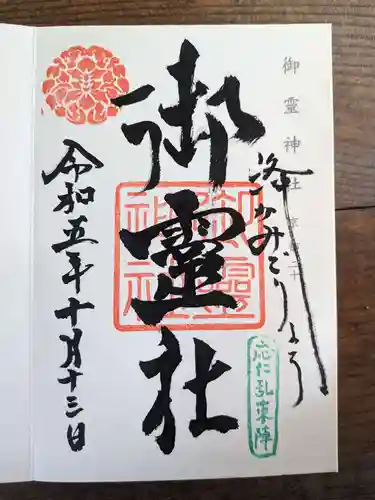 御靈神社
洛かみごりよう
応仁乱東陣
御靈社
御靈神社
令和五年十月十三日